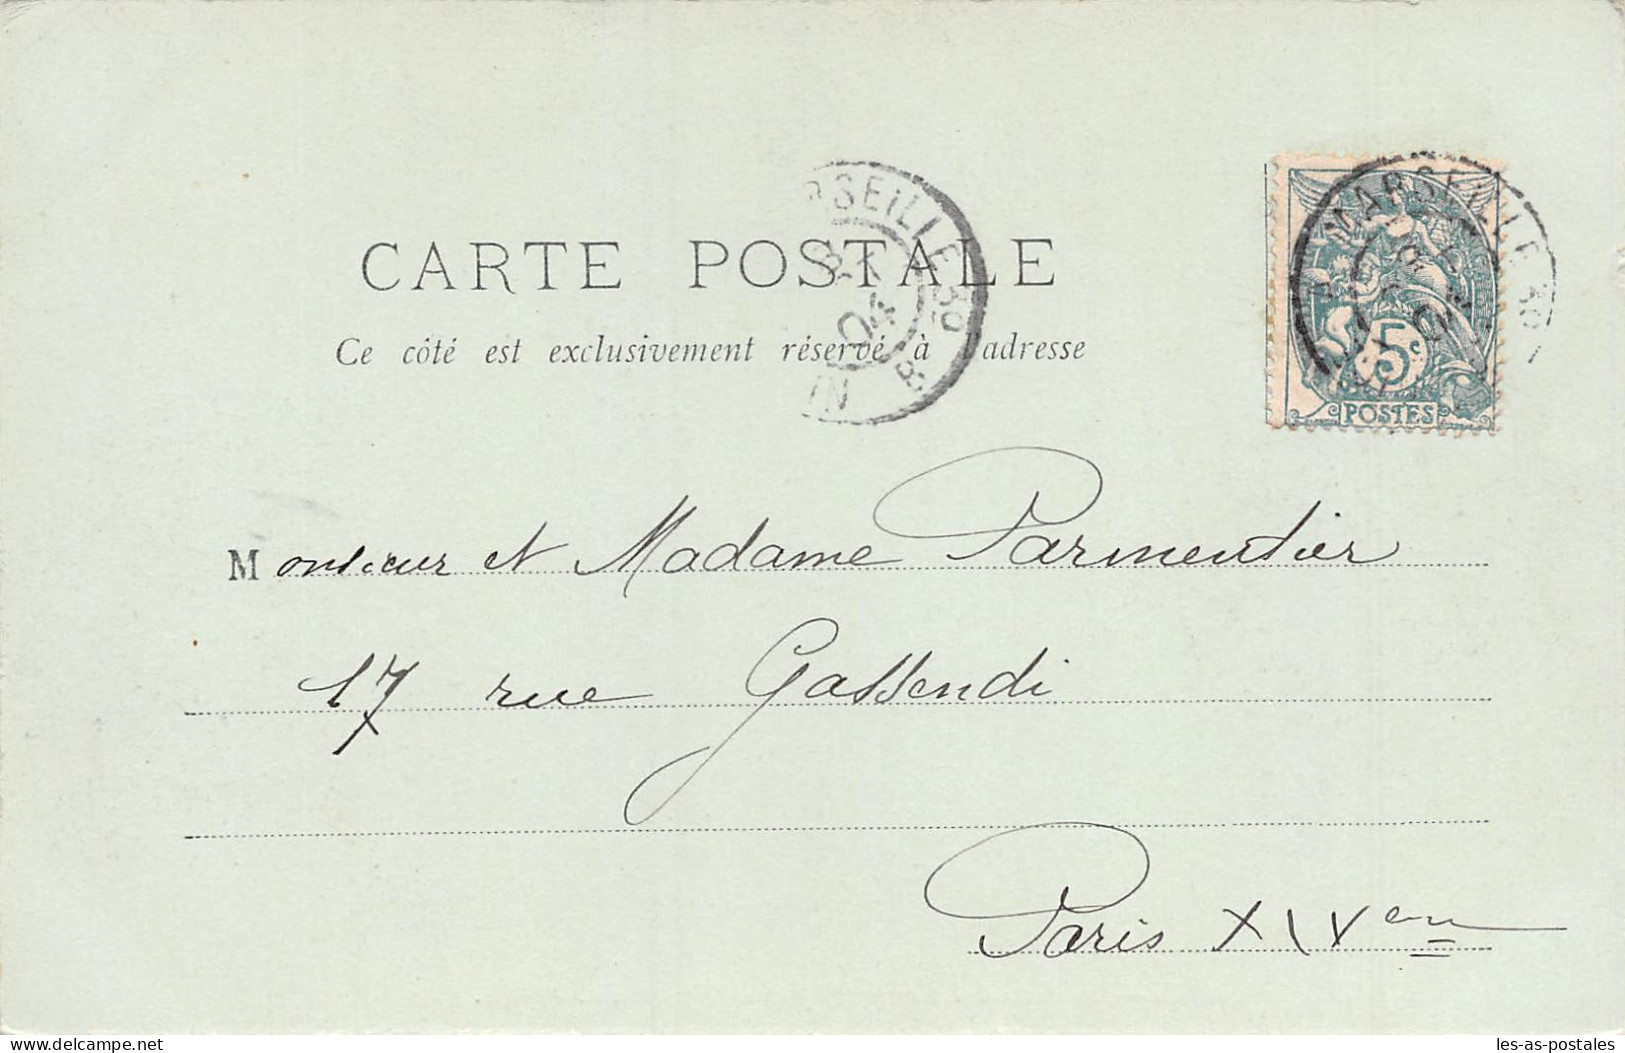 CARTE POSTALE
Ce côté est exclusivement réservé à l'adresse
MARSEILLE
04
MARSEILLE
5c
POSTES
Monsieur et Madame Parmentier
17 rue Gassendi
Paris XIVem
www.delcampe.net
les-as-postales